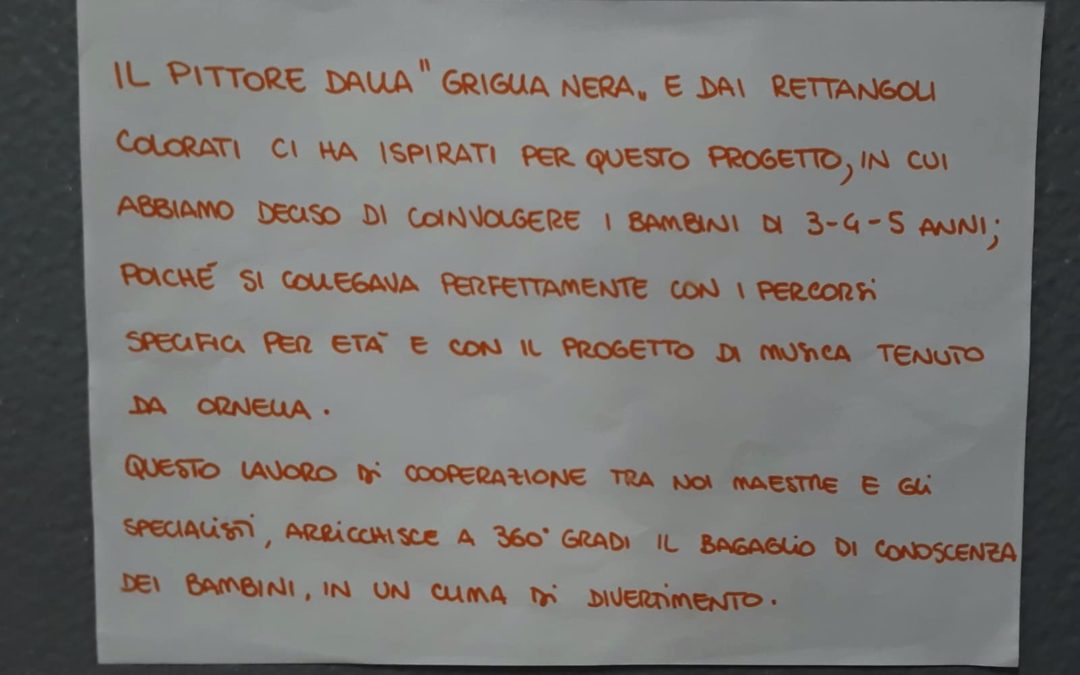 IL PITTORE DALLA " GRIGLIA NERA„ E DAI RETTANGOLI
COLORATI CI HA ISPIRATI PER QUESTO PROGETTO, IN CUI
ABBIAMO DECISO DI COINVOLGERE I BAMBINI DI 3-4-5 ANNI;
POICHÉ SI COLLEGAVA PERFETTAMENTE CON I PERCORSI
SPECIFICI PER ETÀ E CON IL PROGETTO DI MUSICA TENUTO
DA ORNELLA.
QUESTO LAVORO DI COOPERAZIONE TRA NOI MAESTRE E GLI
SPECIALISTI, ARRICCHISCE A 360° GRADI IL BAGAGLIO DI CONOSCENZA
DEI BAMBINI, IN UN CLIMA DI DIVERTIMENTO.